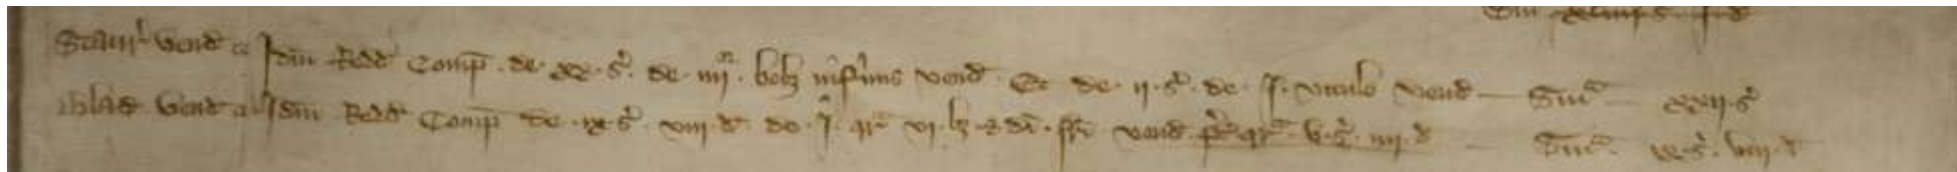 Sm̄ xlviij s̉ j d̉
Staur̉ vend̉ Idm̄ Redd̉ Comp̄ . de . xx . s̉ . de . iiij . bob̉ infirmis vend̉ . Et de . ij . s̉ . de . j . vitulo vend̉ — Sm̄ᵃ — xxij . s̉
Blad̉ . vend̉ Idm̄ Redd̉ Comp̄ de . ix . s̉ . viij . d̉ . de . j . qr̉ vj . b₃ . & di . fr̄i vend̉ p̄c̄ qr̄ . v . s̉ . iiij . d̉ — Sm̄ᵃ . ix . s̉ . viij . d̉